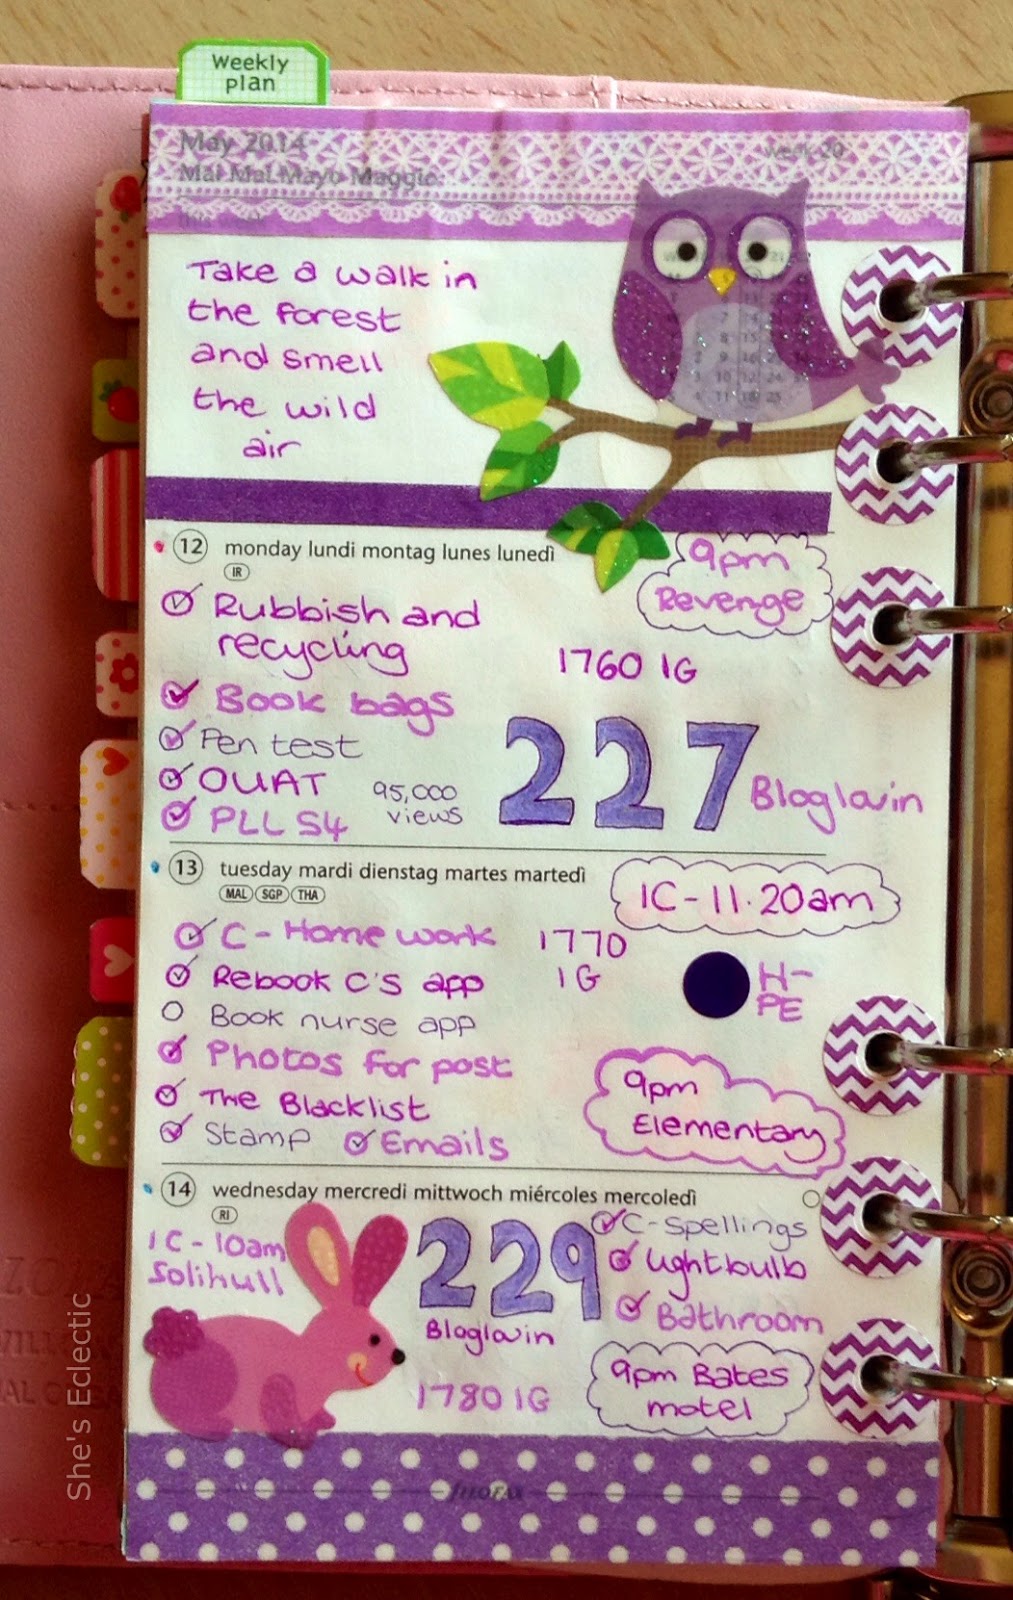 Weekly
plan
May 2014
week 20
Mai Mai Mayo Maggio
Take a walk in
the forest
and smell
the wild
air
12 monday lundi montag lunes lunedì
IR
9pm
Revenge
Rubbish and
recycling
1760 IG
Book bags
Pen test
OUAT
PLL S4
95,000
views
227
Bloglovin
13 tuesday mardi dienstag martes martedì
MAL SGP THA
IC - 11.20am
C - Homework
1770
IG
Rebook C's app
H-
PE
Book nurse app
Photos for post
9pm
Elementary
The Blacklist
Stamp
Emails
14 wednesday mercredi mittwoch miércoles mercoledì
RI
IC - 10am
Solihull
229
Bloglovin
C - Spellings
Lightbulb
Bathroom
1780 IG
9pm Bates
motel
filofax
She's Eclectic